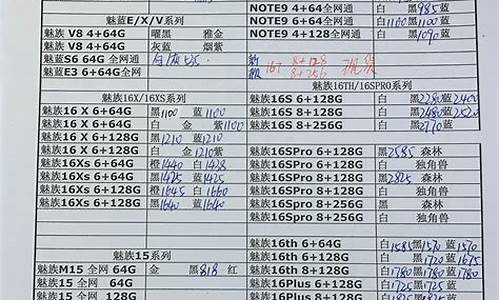 NOTE9 4+64全网通 白 黑985 蓝
魅蓝E/X/V系列 NOTE9 6+64全网通 白1100 黑1100 蓝1100
魅族 V8 4+64G 曜黑 雅金 NOTE9 4+128全网通 白 黑 蓝1090
魅族 V8 4+64G 灰蓝 烟紫
魅蓝S6 64G 全网通 16T 8+128 现货
魅蓝E3 6+64G 全网通 8+256
魅族16X/16XS系列 魅族16TH/16SPRO系列
魅族16 X 6+64G 黑1100 蓝1100 魅族16S 6+128G 白 黑2280 蓝2400
魅族16 X 6+64G 白 金 紫1100 魅族16S 8+128G 白 黑2480 蓝2520
魅族16 X 6+128G 黑1210 蓝1210 魅族16S 8+256G 白 黑2770 蓝
魅族16 X 6+128G 白 金 蓝1210 紫
魅族16Xs 6+64G 橙1440 白1428 魅族16SPro 6+128G 黑2585 森林
魅族16Xs 6+64G 黑1425 蓝1425 魅族16SPro 6+128G 白 独角兽
魅族16Xs 6+128G 橙1645 白1660 魅族16SPro 8+128G 黑2825 森林
魅族16Xs 6+128G 黑1640 蓝1640 魅族16SPro 8+128G 白 独角兽
魅族16SPro 8+256G 黑 森林
魅族16SPro 8+256G 白 独角兽
魅族15系列 魅族16th 6+64G 白1585 黑1570 蓝1570
魅族M15 全网 64G 金 黑818 红 魅族16th 6+128G 白 黑1720 蓝1675
魅族15 全网 64G 魅族16th 8+128G 白1780 黑1780 蓝1780
魅族15 全网 128G 魅族16Plus 6+128G 白1725 黑1725 蓝1725
魅族16Plus 8+128G